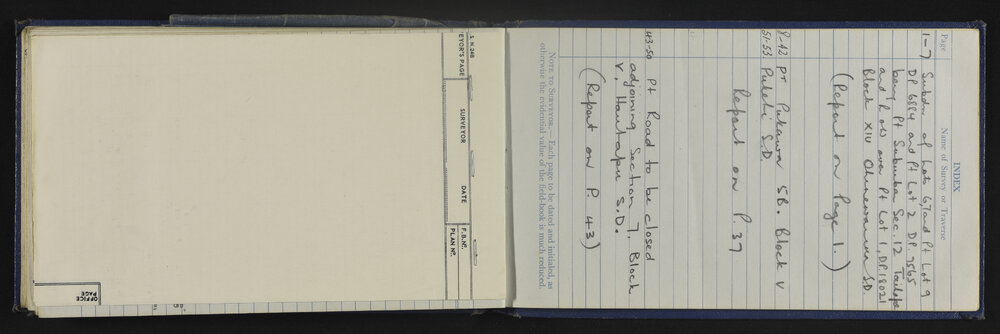 INDEX
Page
Name of Survey or Traverse
1-7 Subdn of Lots 6,7 and Pt Lot 9
DP 6884 and Pt Lot 2 DP 7565
being Pt Suburban Sec 12 Taihape
and R.O.W over Pt Lot 1, D.P. 18021
Block XIV Ohinewairua S.D.
(Report on Page 1.)
8-42 pt Pukawa 5B. Block V
51-53 Puketi S.D.
Report on P 37
43-50 Pt Road to be closed
adjoining Section 7, Block
V, Hautapu S.D.
(Report on P. 43)
NOTE TO SURVEYOR.—Each page to be dated and initialed, as
otherwise the evidential value of the field-book is much reduced.
S.N. 246
EYOR'S PAGE
SURVEYOR
DATE
F.B.Nº.
PLAN Nº.
OFFICE
PAGE